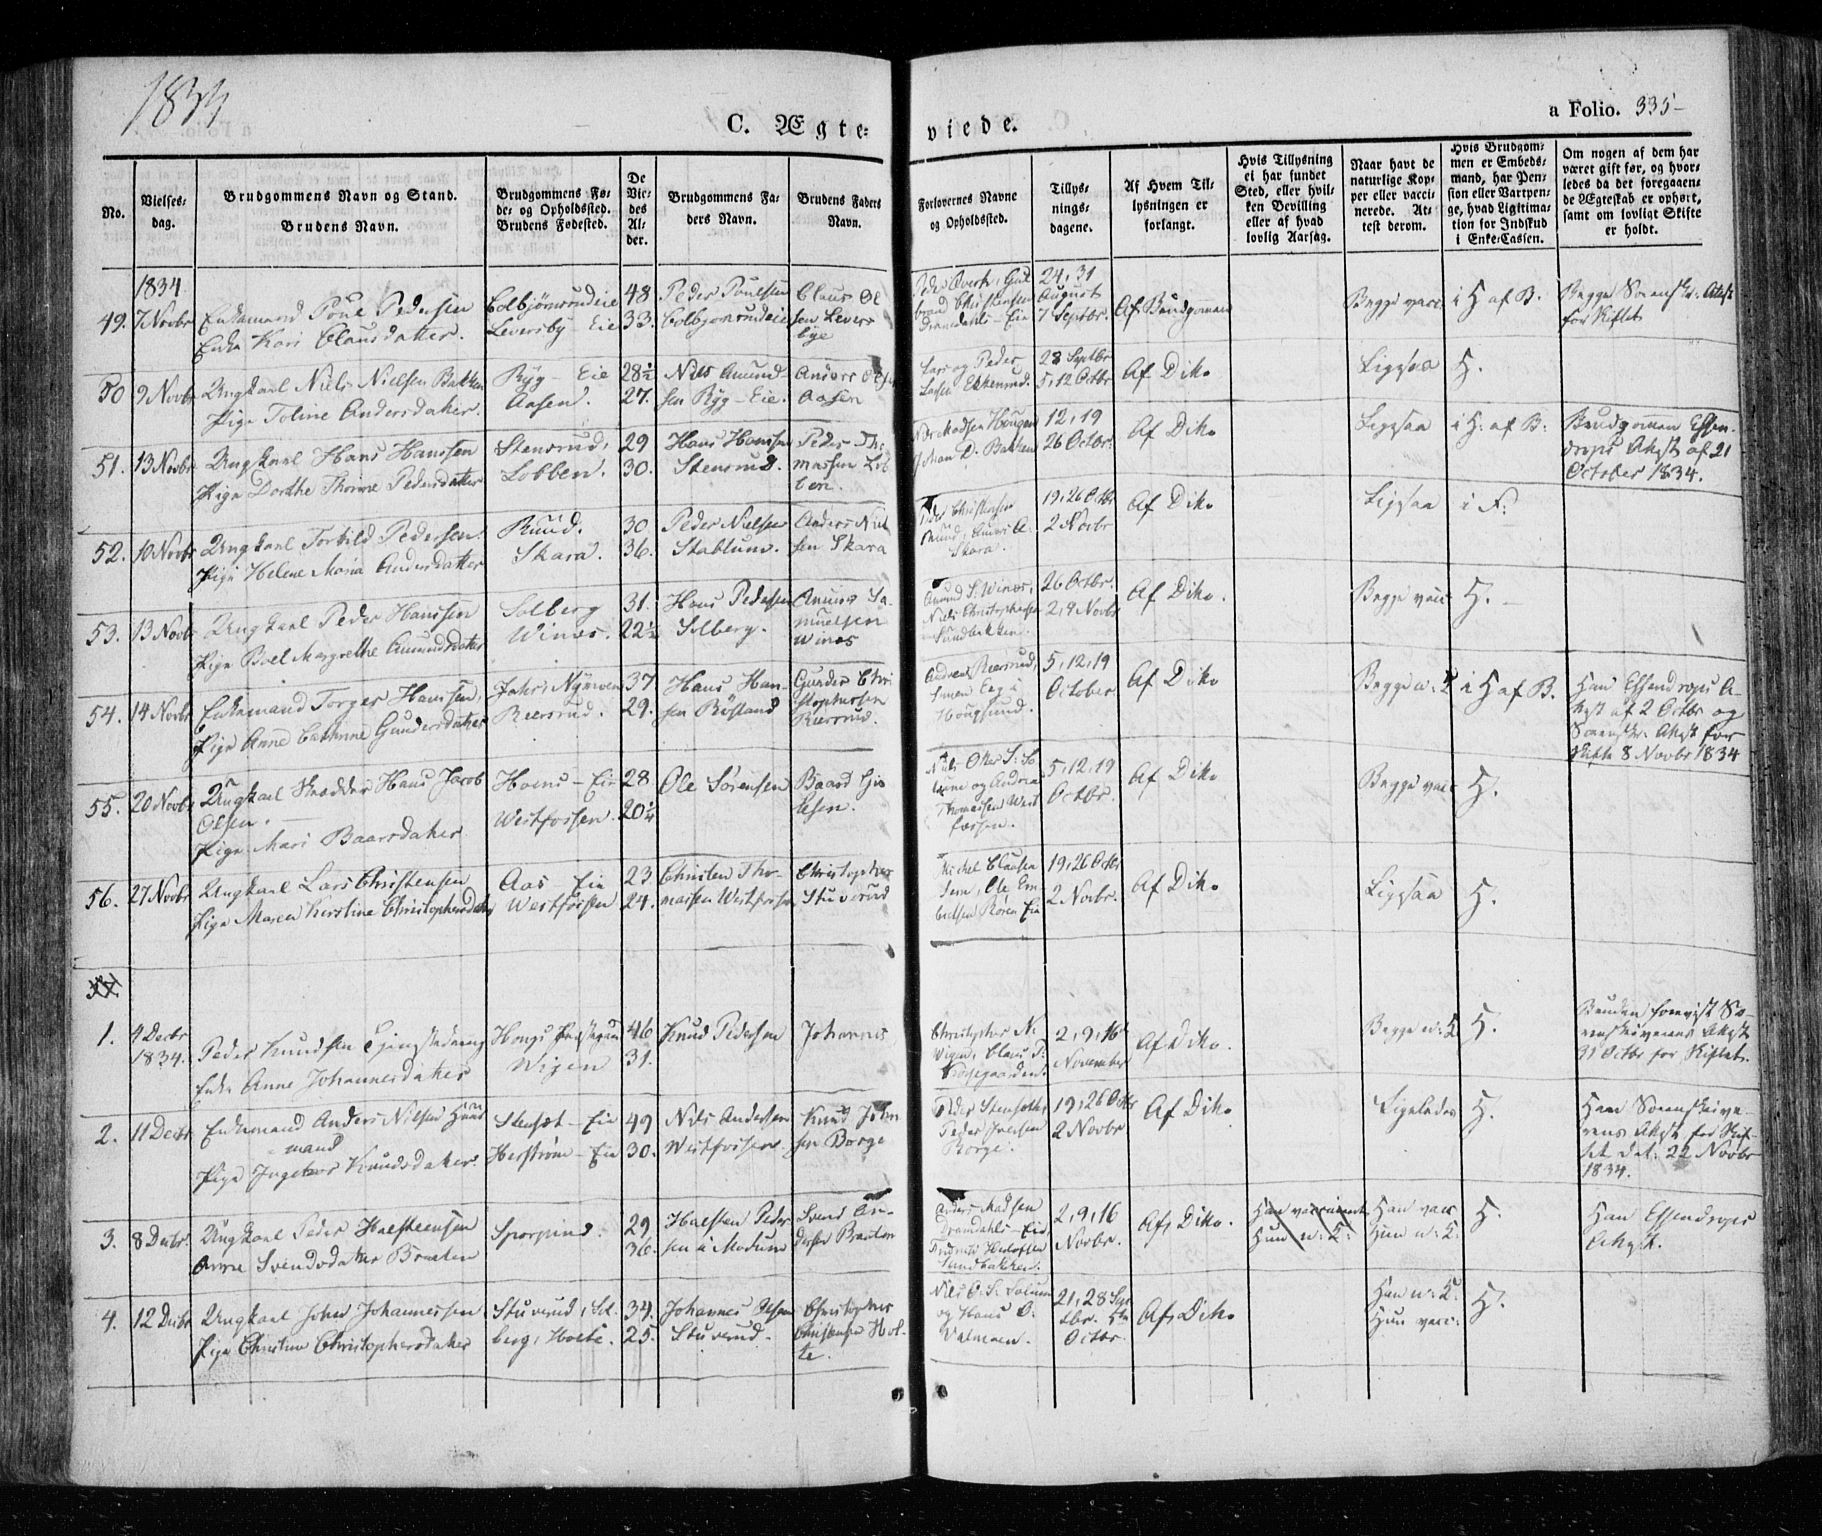 1834
C. Ægte-
viede.
a Folio. 335-
No.
Vielses-
dag.
Brudgommens Navn og Stand.
Brudens Navn.
Brudgommens Fø-
de- og Opholdssted.
Brudens Fødested.
De
Vie-
des
Al-
der.
Brudgommens Fa-
ders Navn.
Brudens Faders
Navn.
Forlovernes Navne
og Opholdssted.
Tillys-
nings-
dagene.
Af Hvem Til-
lysningen er
forlangt.
Hvis Tillysning
ei har fundet
Sted, eller hvil-
ken Bevilling
eller af hvad
lovlig Aarsag.
Naar havt de
naturlige Kop-
per eller vacci-
nerede. At-
test derom.
Hvis Brudgom-
men er Embeds-
mand, har Pen-
sion eller Vartpen-
ge, hvad Legitima-
tion for Indskud
i Enke-Cassen.
Om nogen af dem har
været gift før, og hvor-
ledes da det foregaaen-
de Ægteskab er ophørt,
samt om lovligt Skifte
er holdt.
1834
49. 7 Novbr
Enkemand Poul Pedersen
Enke Kari Clausdatter.
Colbjørnsrudeie
Leversby-Eie
48
33.
Peder Poulsen
Colbjørnsrudeie
Claus Ol
sen Levers
bye
24, 31
August
7 Septbr.
Af Brudgommen
Begge vacc
i H af B.
Begge Sorenskr. Attest
for Skiftet
50 9 Novbr
Ungkarl Niels Nielsen Bakken
Pige Toline Andersdatter.
Ryg - Eie
Aasen.
28½
27.
Nils Amund
sen Ryg-Eie.
Anders Olsen
Aasen
Lars og Peder
28 Septbr
5, 12 Octbr
Af Dito
Ligesaa
H.
51. 13 Novbr
Ungkarl Hans Hanssen
Pige Dorthe Thorine Pedersdatter
Stensrud,
Lobben.
29
30.
Hans Hanssen
Stensrud.
Peder Tho
massen Lob
ben.
Johan D. Bakken
12, 19
26 Octbr.
Af Dito
Ligesaa
i H. af B.
Brudgommen Essen-
drops Attest af 21
October 1834.
52. 10 Novbr
Ungkarl Torkild Pedersen.
Pige Helene Maria Andersdatter
Ruud.
Skara.
30
36.
Peder Nielsen
Stablum.
Anders Niel
sen Skara
Peder Christensen
Ruud, Anders A.
Skara.
19, 26 Octbr
2 Novbr
Af Dito
Ligesaa
i F.
53. 13 Novbr
Ungkarl Peder Hanssen
Pige Boel Margrethe Amundsdatter
Solberg
Winæs.
31.
22½
Hans Pedersen
Solberg.
Amund Sa-
muelsen
Winæs
Amund S. Winæs,
Niels Christophersen
Sundbakken.
26 Octbr.
2, 9 Novbr
Af Dito.
Begge vacc
H.
54. 14 Novbr
Enkemand Torger Hanssen,
Pige Anne Cathrine Gundersdatter
Reersrud.
37
29.
Hans Han-
sen Røsland
Gunder Chri
stophersen
Reersrud.
Andreas Reersrud,
Hougsund.
5, 12, 19
October
Af Dito
i H af B.
Han Essendrops A-
ttest af 2 Octbr og
Sorenskr. Attest for
Skifte 8 Novbr 1834
55. 20 Novbr
Ungkarl Skrædder Hans Jacob
Olsen.
Pige Mari Baarsdatter
Hoens - Eie
Westfossen.
28
20¼
Ole Sørensen
og Andrea
Thomassen West
fossen.
5, 12, 19
Octbr.
Af Dito
Begge vacc
H.
56. 27 Novbr
Ungkarl Lars Christensen
Pige Maren Kirstine Christophersdatter
Aas - Eie
Westfossen
23
24.
Christen Tho-
massen Westfossen
Christopher
Stuverud
19, 26 Octbr
2 Novbr.
Af Dito
Ligesaa
H.
57.
1. 4 Decbr
1834.
Peder Knudsen
Enke Anne Johannesdatter
Wigen
46
31.
Knud Pedersen
Johannes
Christopher N.
Wigen, Claus P.
2, 9, 16
November
Af Dito.
H.
Bruden forevist So-
renskriverens Attest
31 Octbr for Skiftet.
2. 11 Decbr
Enkemand Anders Nilsen Huus
mand
Pige Ingebor Knudsdatter.
Stensæt - Eie
Herstrøm - Eie
49
30.
Nils Andersen
Westfossen
Knud John
sen Borge
Peder Stensæth,
Peder Iversen
Borge.
19, 26 Octbr
2 Novbr
Af Dito
Ligeledes
H.
Han Sorenskrive-
rens Attest for Skif-
tet dat. 22 Novbr
1834.
3. 8 Decbr.
Ungkarl Peder Halsteensen
Anne Svendsdatter Braaten
29
36.
Halsten Peder
sen i Modum
Svend An-
dersen Braaten
Anders Madsen
Dramdahls Eie,
Sundbakken.
2, 9, 16
Novbr.
Af Dito.
Han vaccineret
Hun n. K.
Han vacc
Hun n. K.
H.
Han Essendrops
Attest.
4. 12 Decbr
Ungkarl John Johannessen
Pige Christine Christophersdatter
Stuverud, Sol-
berg, Holte.
34.
25.
Johannes Olsen
Stuverud.
Christopher
Christensen Hol-
te.
Nils O. S. Solum
og Hans O.
21, 28 Sep
tbr. 5te
Octbr.
Af Dito
Han n. K.
Hun vacc.
H.